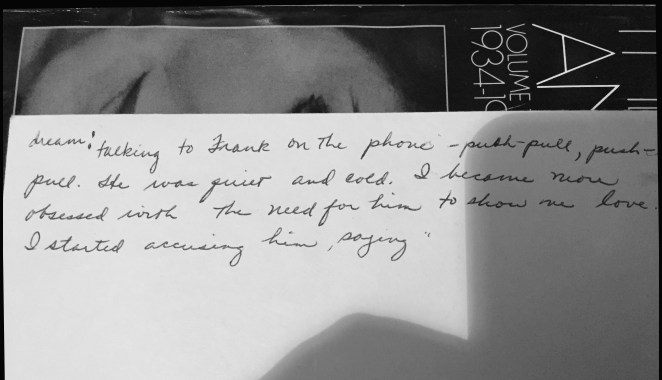 VOLUME
1934-19
AN
dream: talking to Frank on the phone - push-pull, push-
pull. He was quiet and cold. I became more
obsessed with the need for him to show me love.
I started accusing him, saying "